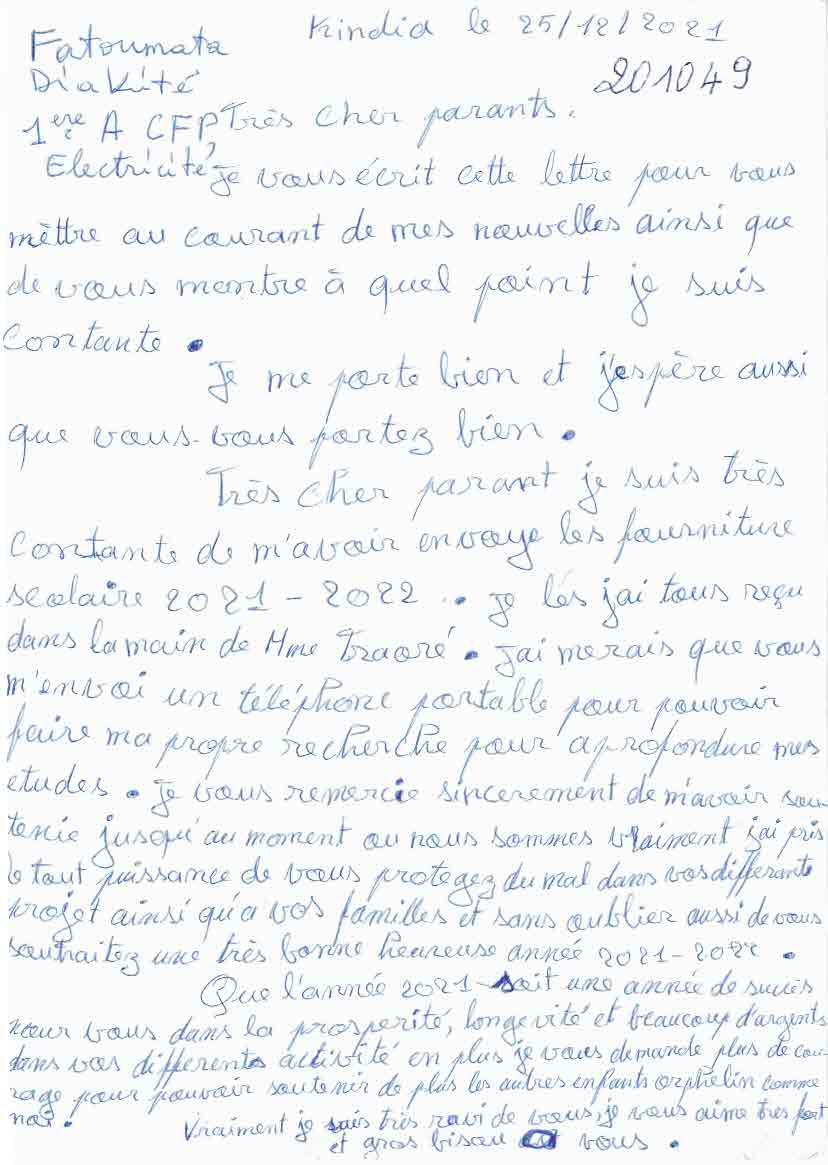 Kindia le 25/12/2021
Fatoumata
Diakité
201049
1ere A CFP Très cher parants.
Electricité, Je vous écrit cette lettre pour vous
mèttre au courant de mes nouvelles ainsi que
de vous montre à quel point je suis
Contante.
Je me porte bien et j'espère aussi
que vous-vous portez bien.
Très Cher parant je suis très
Contante de m'avoir envoye les fourniture
scolaire 2021-2022.. je les j'ai tous reçu
dans la main de Mme Traoré. j'ai merais que vous
m'envoi un téléphone portable pour pouvoir
faire ma propre recherche pour aprofondure mes
etudes. Je vous remercie sincerement de m'avoir sou-
tenie jusqu'au moment ou nous sommes vraiment j'ai pris
le tout puissance de vous protegez du mal dans vos differente
projet ainsi qu'a vos familles et sans oublier aussi de vous
souhaitez une très bonne heureuse année 2021-2022.
Que l'année 2021-soit une année de succès
pour vous dans la prosperité, longevité et beaucoup d'argents
dans vos differents activité en plus je vous demande plus de cou-
rage pour pouvoir soutenir de plus les autres enfants orphelin comme
moi.
Vraiment je suis très ravi de vous, je vous aime tres fort
et gros bisou vous.